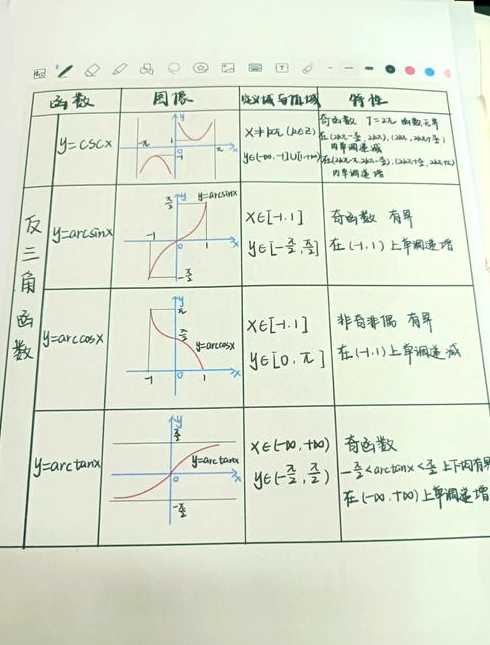 函数 图像 定义域与值域 特性
y=cscx
-π π 1 -1 0 x y
x≠kπ (k∈Z)
y∈(-∞,-1]∪[1,+∞)
奇函数 T=2π 函数无界
在(2kπ-π/2, 2kπ), (2kπ, 2kπ+π/2)
内单调递减
内单调递增
反三角函数
y=arcsinx
π/2 y y=arcsinx
-1 0 1 x
-π/2
x∈[-1,1]
y∈[-π/2,π/2]
奇函数 有界
在(-1,1)上单调递增
y=arccosx
y π
π/2
y=arccosx
-1 0 1 x
x∈[-1,1]
y∈[0,π]
非奇非偶 有界
在(-1,1)上单调递减
y=arctanx
π/2 y
y=arctanx
0 x
-π/2
x∈(-∞,+∞)
y∈(-π/2,π/2)
奇函数
-π/2<arctanx<π/2 上下均有界
在(-∞,+∞)上单调递增